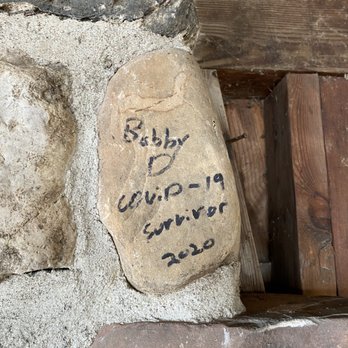 Bobby
D
COViD-19
Survivor
2020